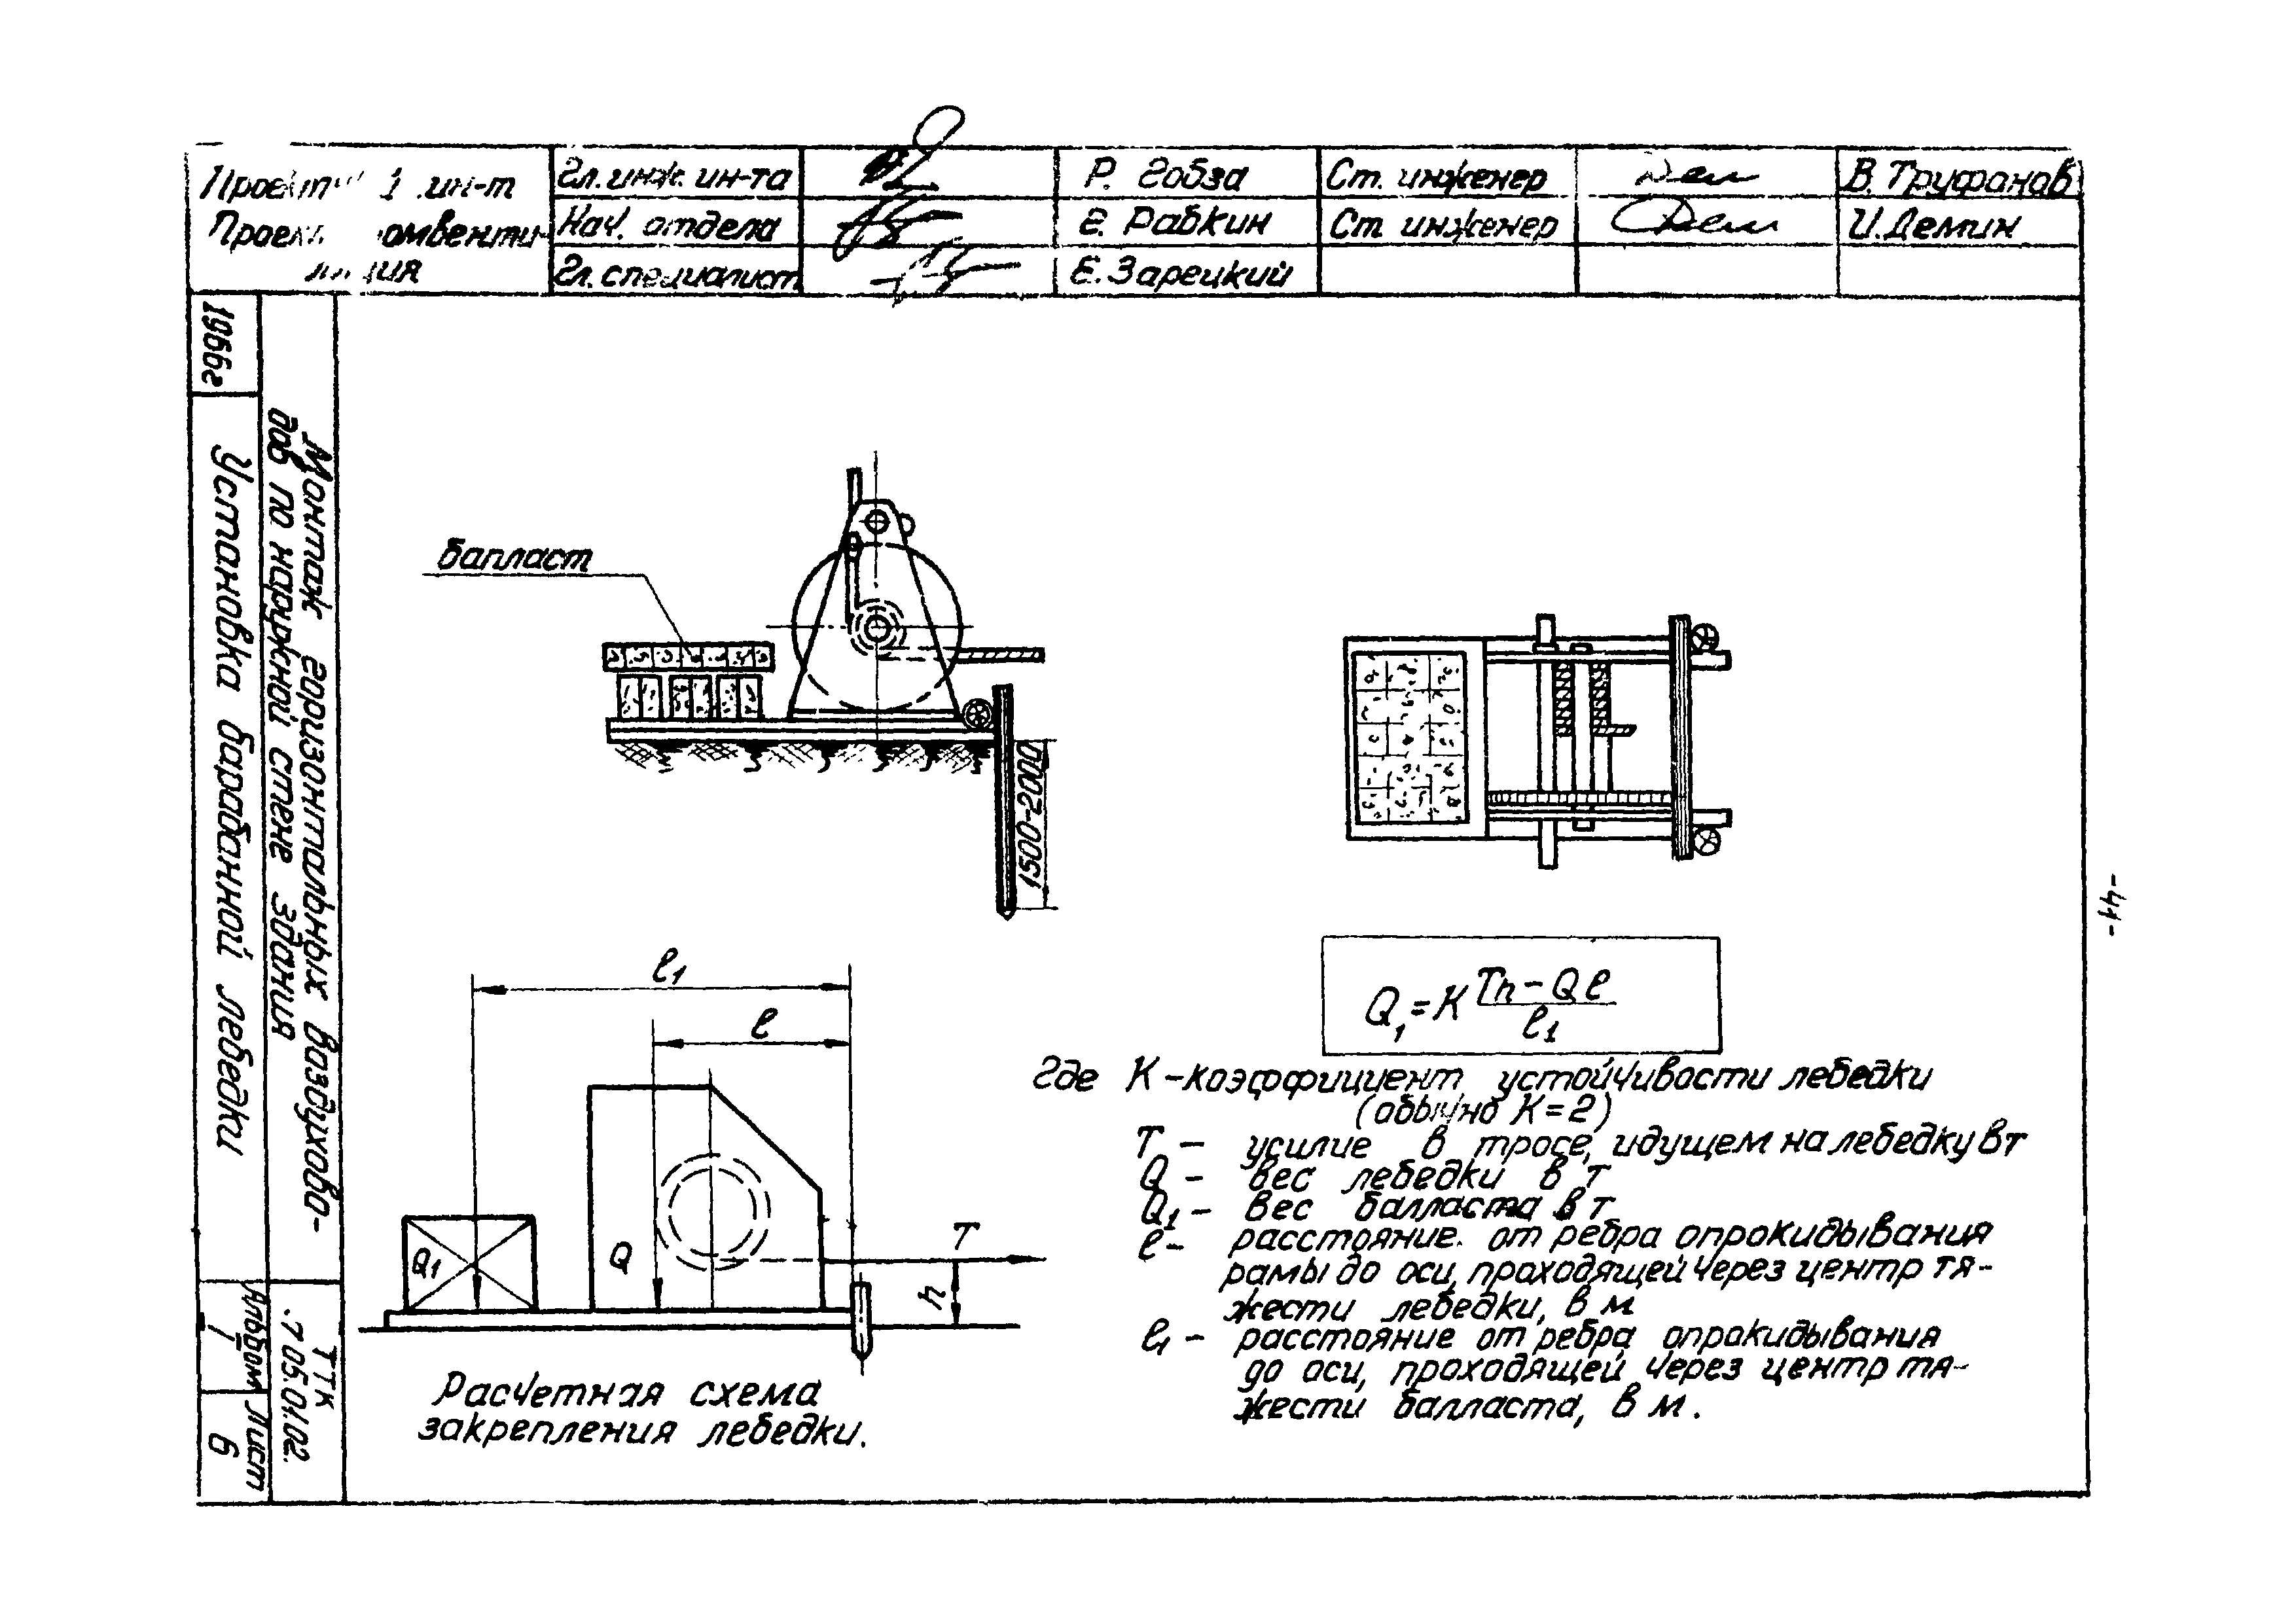 ин-т
Гл. инж. ин-та
Р. Гобза
Ст. инженер
В. Труфанов
Нач. отдела
Е. Рабкин
Ст. инженер
И. Демин
Гл. специалист
Е. Зарецкий
1966г
Установка барабанной лебедки
Монтаж горизонтальных воздухово-
дов по наружной стене здания
Альбом
Лист
6
ТТК
7.05.01.02.
балласт
1500-2000
-41-
l1
l
Q1
Q
T
h
Расчетная схема
закрепления лебедки.
Q1 = K Th - Ql / l1
Где К - коэффициент устойчивости лебедки
(обычно К = 2)
Т - усилие в тросе, идущем на лебедку в т
Q - вес лебедки в т
Q1 - вес балласта в т
l - расстояние от ребра опрокидывания
рамы до оси, проходящей через центр тя-
жести лебедки, в м
l1 - расстояние от ребра опрокидывания
до оси, проходящей через центр тя-
жести балласта, в м.